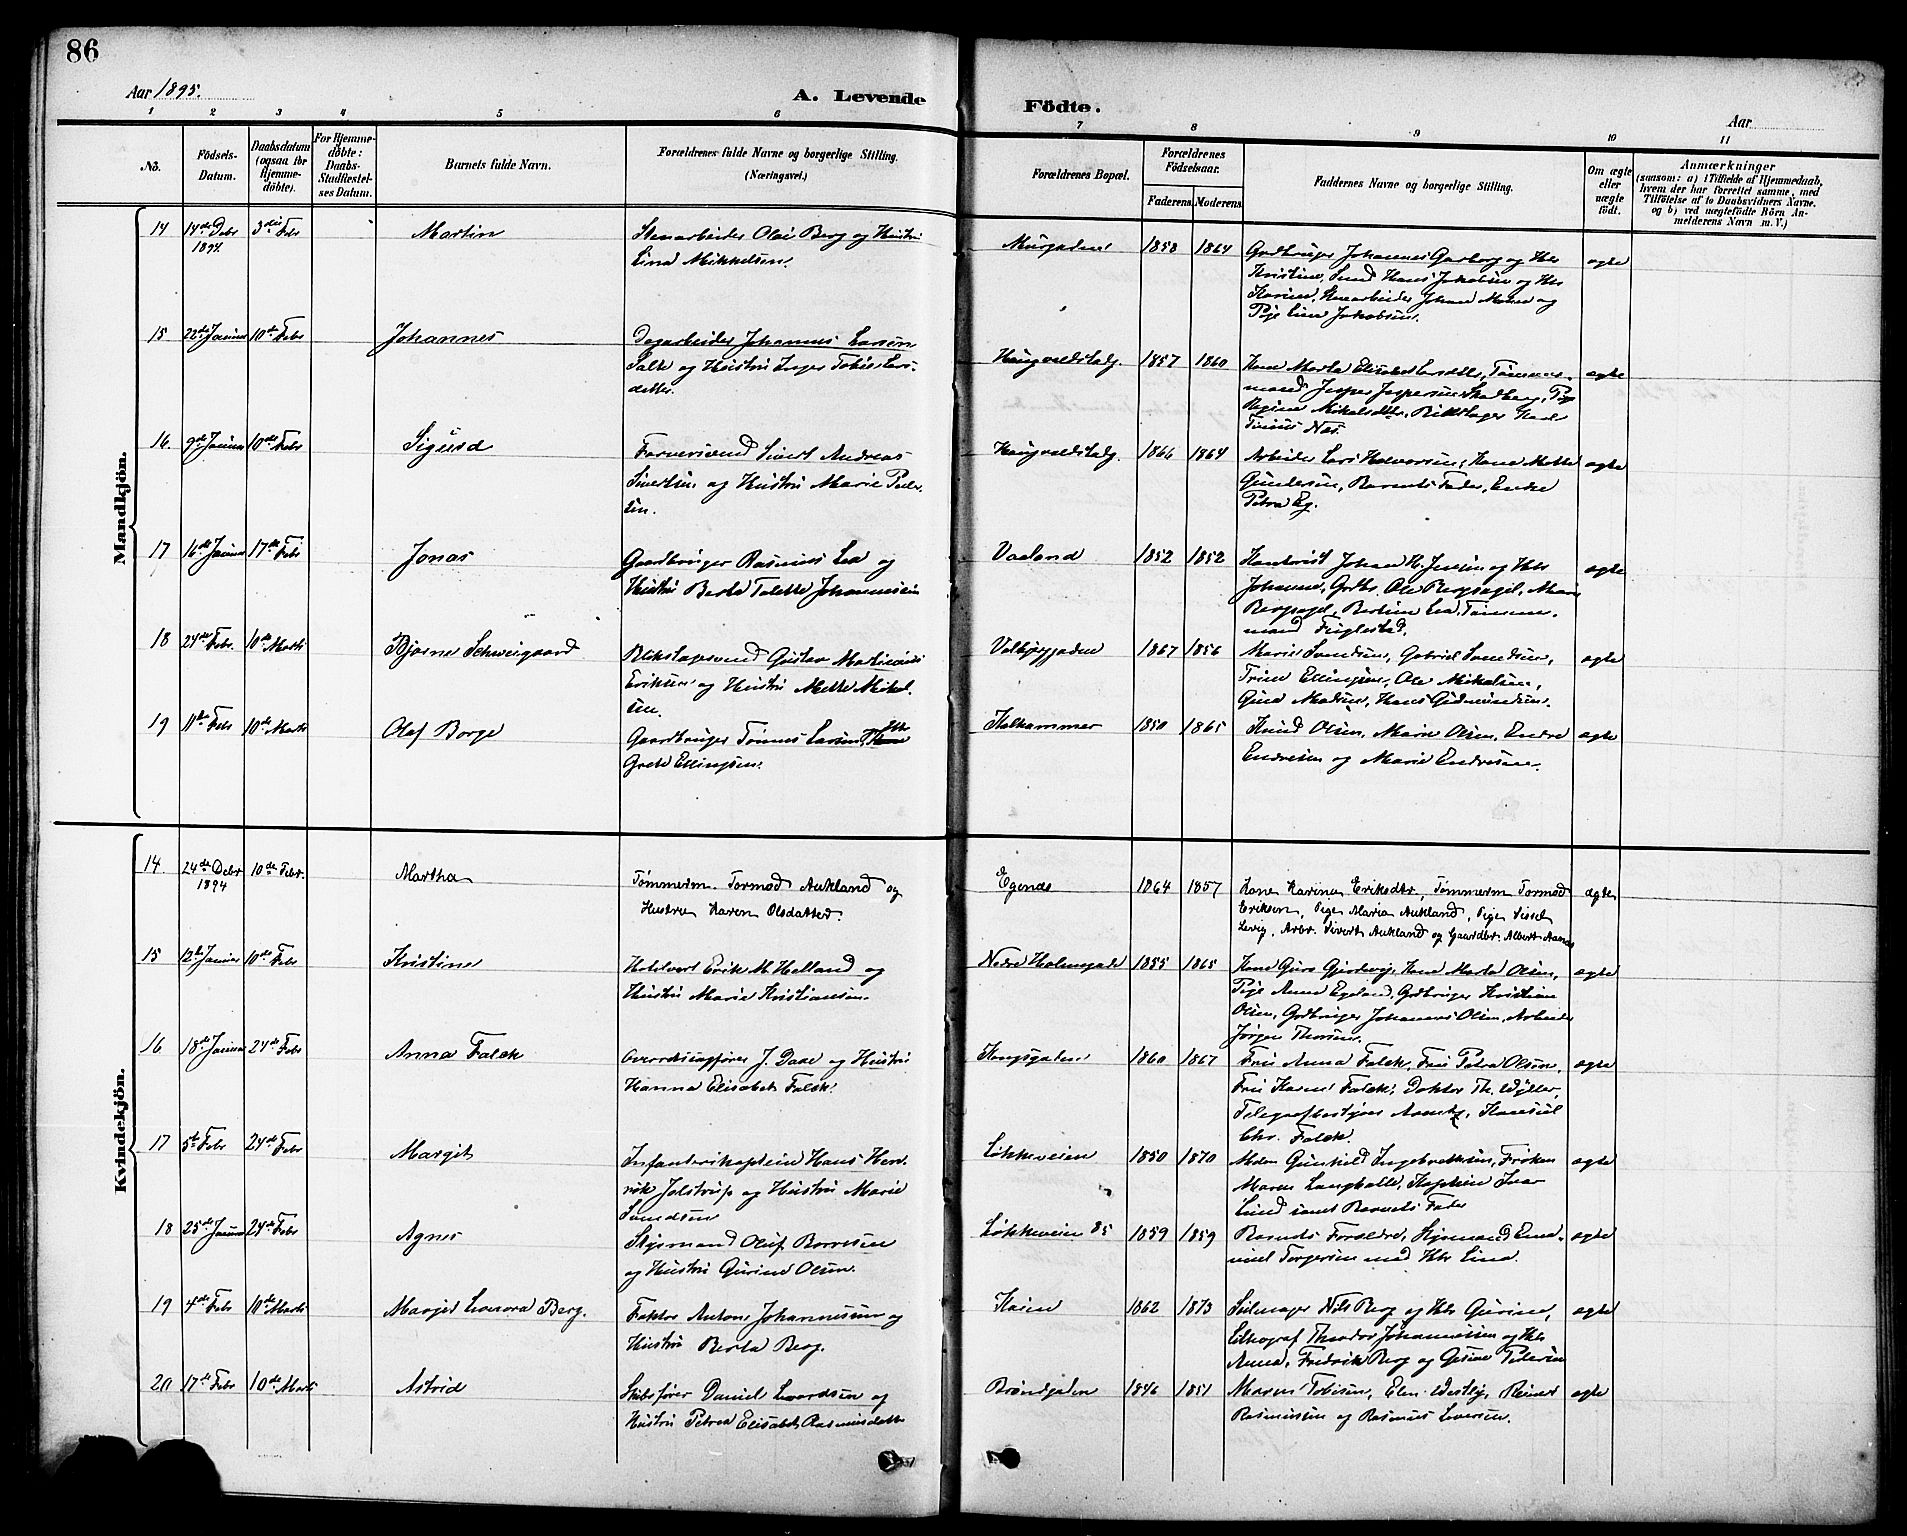 86
Aar 1895.
A. Levende Födte.
Aar
1 2 3 4 5 6 7 8 9 10 11
No.
Födsels-Datum.
Daabsdatum (ogsaa for Hjemmedöbte).
For Hjemmedöbte: Daabs-Stadfæstelses Datum.
Barnets fulde Navn.
Forældrenes fulde Navne og borgerlige Stilling.
(Næringsvei.)
Forældrenes Bopæl.
Forældrenes Födselsaar.
Faderens. Moderens.
Faddernes Navne og borgerlige Stilling.
Om ægte eller uægte födt.
Anmærkninger
(saasom: a) i Tilfælde af Hjemmedaab, hvem der har forrettet samme, med Tilföielse af to Daabsvidners Navne. og b) ved uægtefödte Börn Anmelderens Navn m. V.)
Mandkjön.
14 14de Debr 1894 3die Febr Martin
Stenarbeider Olai Berg og Hustru
Lina Mikkelsen.
Murgaden 1858 1864
Gndbruger Johannes Garborg og Hst
Kristine, Hans Jakobsen og Hst
Karine, Stenarbeider Johan og
Pige Lina Jakobsen.
ægte
15 22de Januar 10de Febr Johannes
Dagarbeider Johannes Larsen
Salte og Hustru Inger Tobie Lars-
datter.
Haugvaldstadg. 1857 1860
Kone Marta Elisabet Larsdtr, Tømmer-
mand Jesper Jespersen, Pige
Regine Mikalsdtr, Karl
Næs.
ægte
16 9de Januar 10de Febr Sigurd
Farversvend Sivert Andreas
Sivertsen og Hustru Marie Peder-
sen.
Haugvaldstadg. 1866 1864
Arbeider Lars Halvorsen, Kone Mette
Gundersen, Barnets Fader, Enke
Petra Eg.
ægte
17 16de Januar 17de Febr Jonas
Gaardbruger Rasmus Lea og
Hustru Berta Talette Johannesen
Vaaland 1852 1852
Johan H. Jensen og Hst
Johanne, Gndbr. Ole Bergsagel, Marie
Bergsagel, Bertine Lea, Tømmer-
mand Fuglestad.
ægte
18 24de Febr. 10de Marts Bjarne Schweigaard
Blikslagersvend Gustav Martinius
Eriksen og Hustru Mette Mikal-
sen.
Valbjerggaden 1867 1856
Marie Svendsen, Gabriel Svendsen,
Trine Ellingsen, Ole Mikalsen,
Madsen, Hans Gudmundsen.
ægte
19 11te Febr 10de Marts Olaf Borge
Gaardbruger Tønnes Larsen, Hst
Grete Ellingsen.
Kalhammer 1850 1865
Knud Olsen, Marie Olsen, Endre
Endresen og Marie Endresen.
ægte
Kvindekjön.
14 24de Debr 1894 10de Febr. Martha
Tømmerm. Tormod Aukland og
Hustru Karen Olsdatter.
Egenæs 1864 1857
Kone Karina Eriksdtr, Tømmerm Tormod
Eriksen, Pige Maria Aukland, Pige Sissel
Levig, Arbr. Sivert Aukland og Gaardbr. Albert Aanæs
ægte
15 12te Januar 10de Febr Kristine
Hotelvert Erik M. Helland og
Hustru Marie Kristiansen.
Nedre Holmegade 1855 1865
Kone Guro Gjedrevig, Kone Marta Olsen,
Pige Anna Egeland, Gndbruger Kristian
Olsen, Gndbruger Johannes Olsen, Arbeider
Jørgen Thorsen.
ægte
16 18de Januar 24de Febr Anna Falck
Overretssagfører J. Daae og Hustru
Hanna Elisabet Falck.
Kongsgaten 1860 1867
Fru Anna Falck, Fru Petra Olsen,
Fru Karen Falck, Doktor Th. Wyller,
Telegrafbestyrer, Konsul
Chr. Falck.
ægte
17 5te Febr 24de Febr Margit
Infanterikaptein Hans Hen-
rik Jelstrup og Hustru Marie
Svendsen
Løkkeveien 1850 1870
Gunhild Ingebretsen, Frøken
Maren Langballe, Kaptein Ivar
Lund samt Barnets Fader
ægte
18 25de Januar 24de Febr Agnes
Styrmand Oluf Borresen
og Hustru Gurine Olsen.
Løkkeveien 85 1859 1859
Barnets Forældre, Styrmand Ema-
nuel Torgersen med Hst Lina.
ægte
19 4de Febr 10de Marts Margit Leonora Berg.
Faktor Anton Johannesen og
Hustru Berta Berg.
Kaien 1862 1873
Seilmager Nils Berg og Hst Gurine,
Lithograf Theodor Johannessen og Hst
Anna, Fredrik Berg og Gesine Petersen
ægte
20 17de Febr 10de Marts Astrid
Skibsfører Daniel og
Hustru Petrea Elisabet Rasmusdatter
Brøndgaten 1846 1851
Maren Tobisen, Elen, Reinert
Rasmussen og Rasmus.
ægte